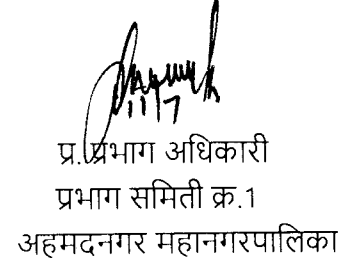 11/7
प्र. प्रभाग अधिकारी
प्रभाग समिती क्र.1
अहमदनगर महानगरपालिका